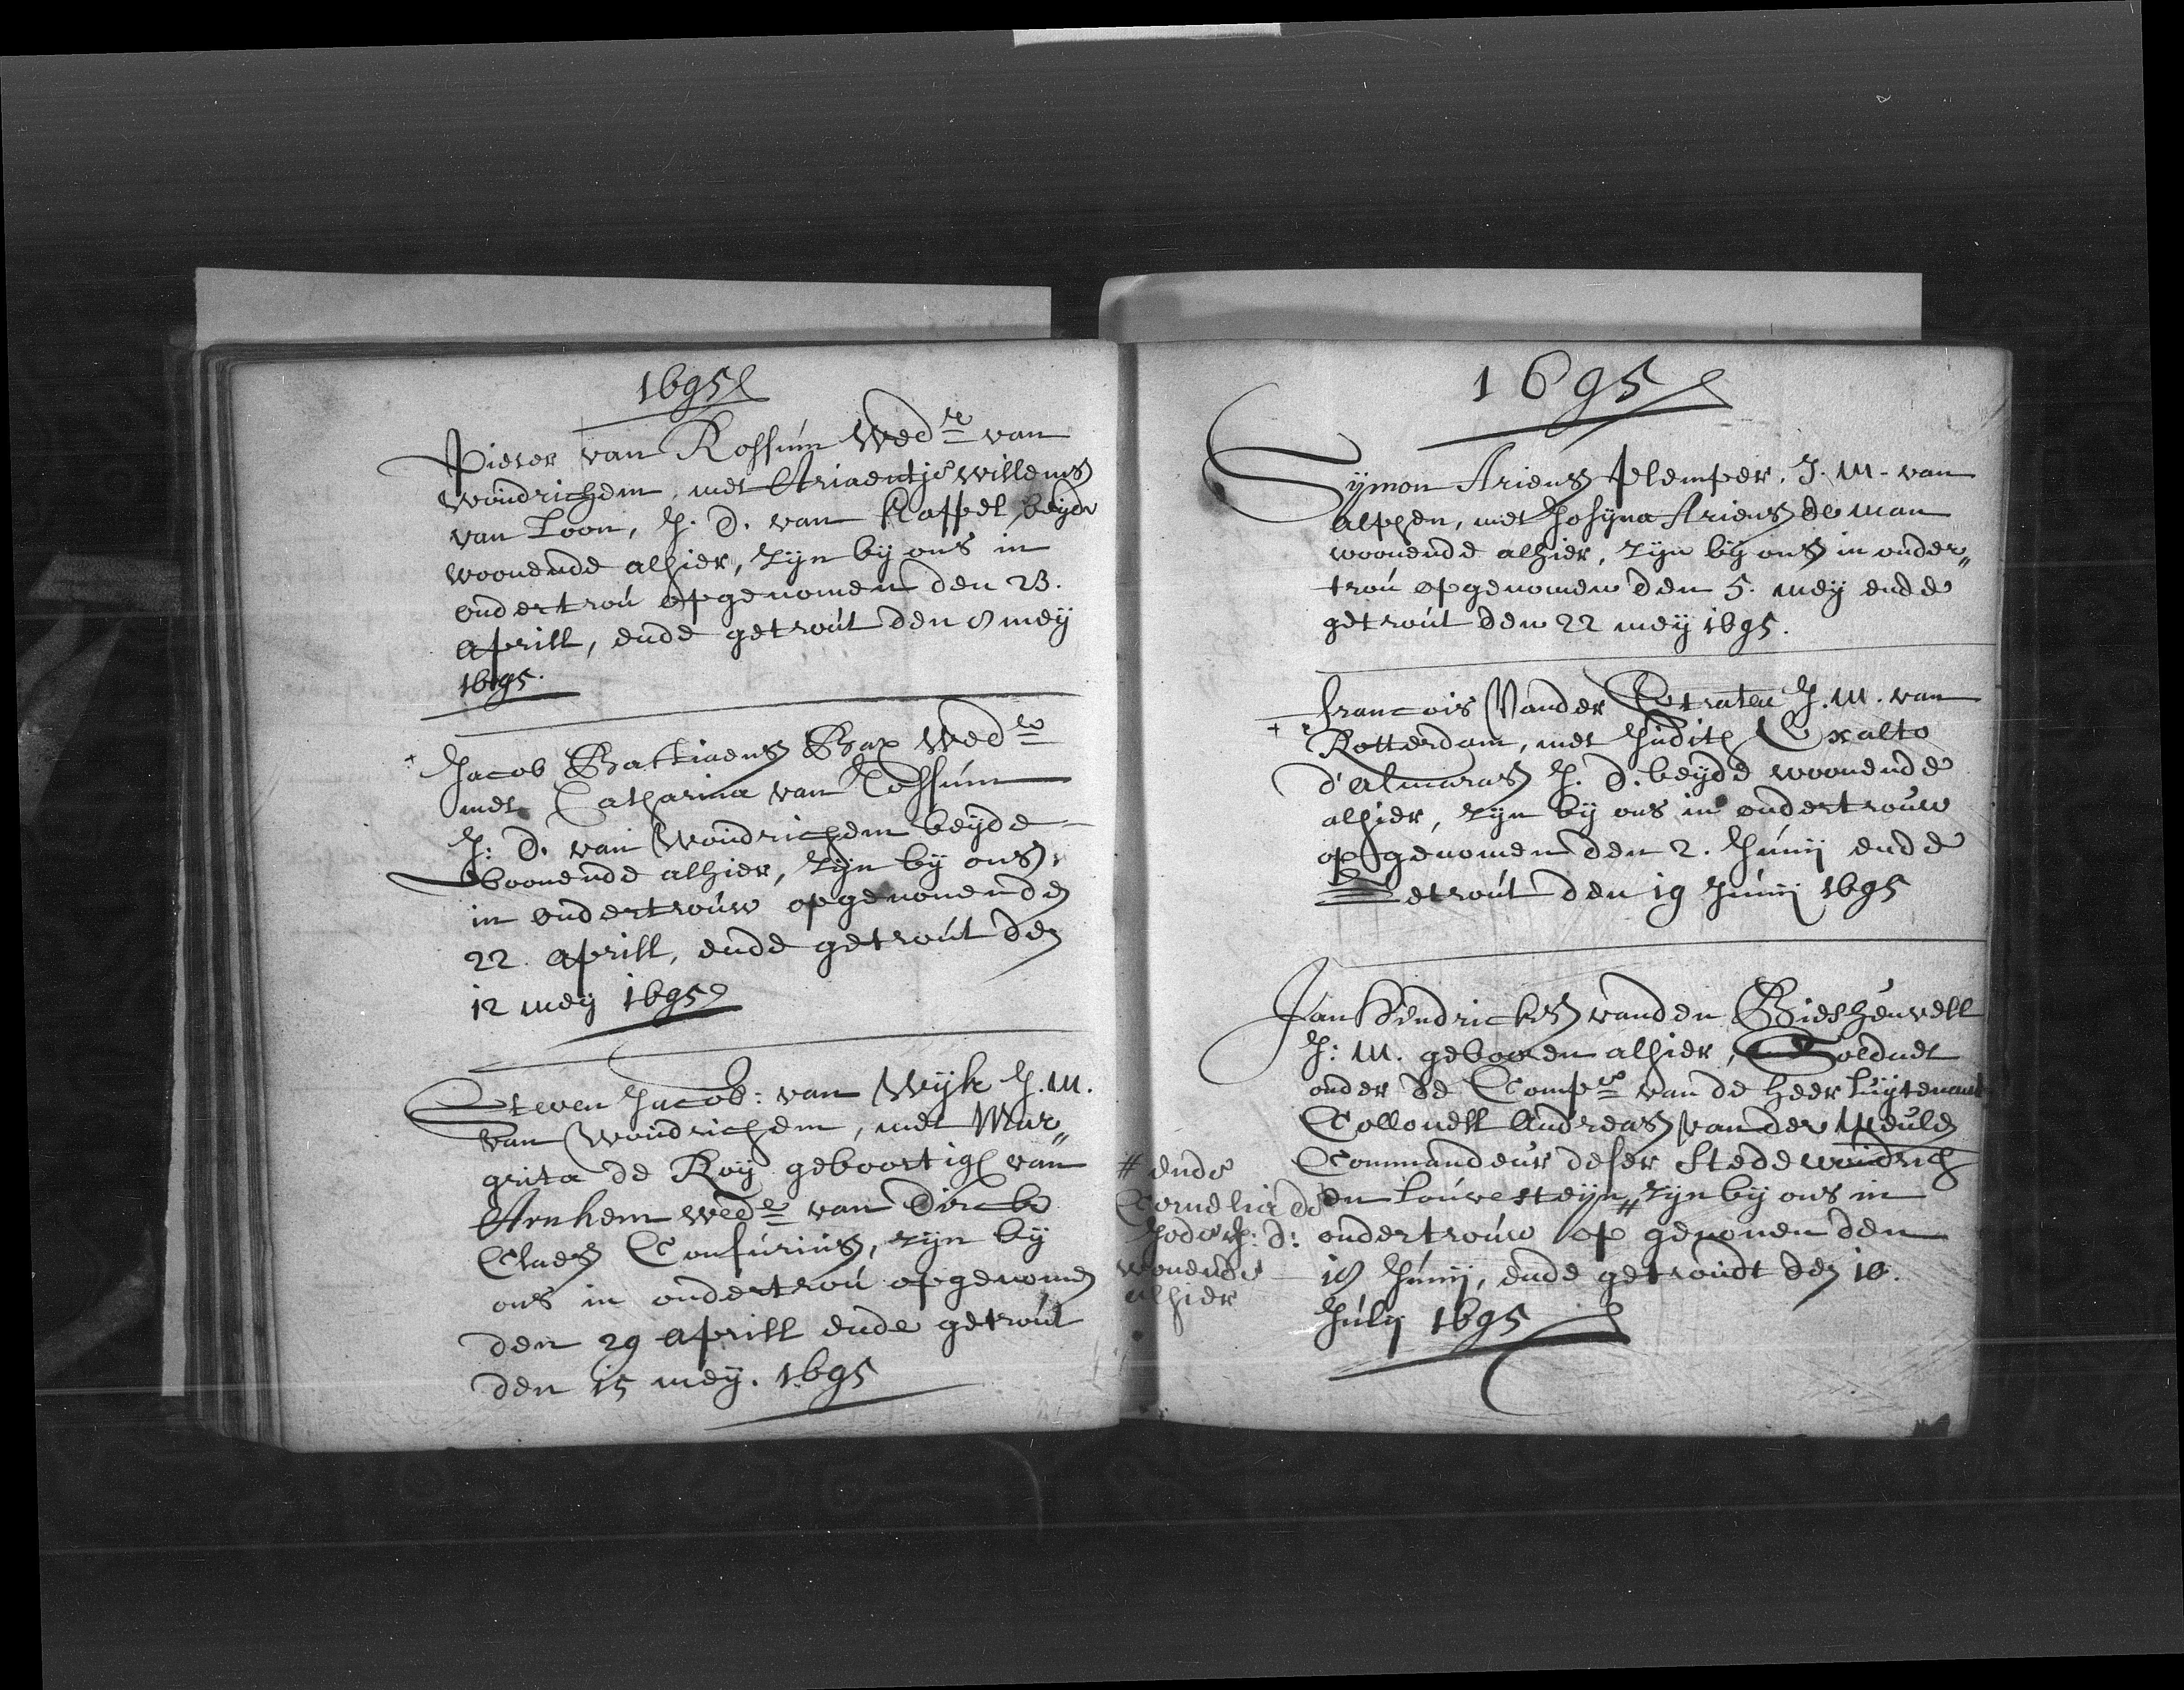 1695
Pieter van Rossum Wedr van
Woudrichem, met Ariaentje Willems
van Loon, J. D. van Cappel beyde
woonende alhier, zijn bij ons in
ondertrou opgenomen den 23.
Aprill, ende getrout den 8 meij
1695.
Jacob Bastiaens Bax Wedr
met Catharina van Rossum
J: D. van Woudrichem beyde
Woonende alhier, zijn bij ons
in ondertrouw opgenomen den
22. Aprill, ende getrout den
12 meij 1695
Steven Jacob: van Wijk J. M.
van Woudrichem, met Mar„
grita de Roij geboortigh van
Arnhem wede van Dirck
Claes Confurius, zijn bij
ons in ondertrou opgenomen
den 29 Aprill ende getrout
den 15 meij. 1695
1695
Sijmon Ariens Plemper. J. M. van
Alphen, met Josyna Ariens de man
woonende alhier, zijn bij ons in onder„
trou opgenomen den 5. meij ende
getrout den 22 meij 1695.
Francois Vander Straten J. M. van
Rotterdam, met Judith Exalto
d'Almaras J. D. beyde woonende
alhier, zijn bij ons in ondertrouw
opgenomen den 2. Junij ende
Getrout den 19 Junij 1695
Jan Hendricks vanden Biesheuvell
J: M. gebooren alhier, Soldaet
onder de Compe van de heer Luytenant
Collonell Andreas van der Meulen
Commandeur deser Stede woudrich
en Louvesteijn # zijn bij ons in
ondertrouw op genomen den
18 Junij, ende getroudt den 10.
Julij 1695
# ende
Cornelia de
Jode J: D:
wonende
alhier